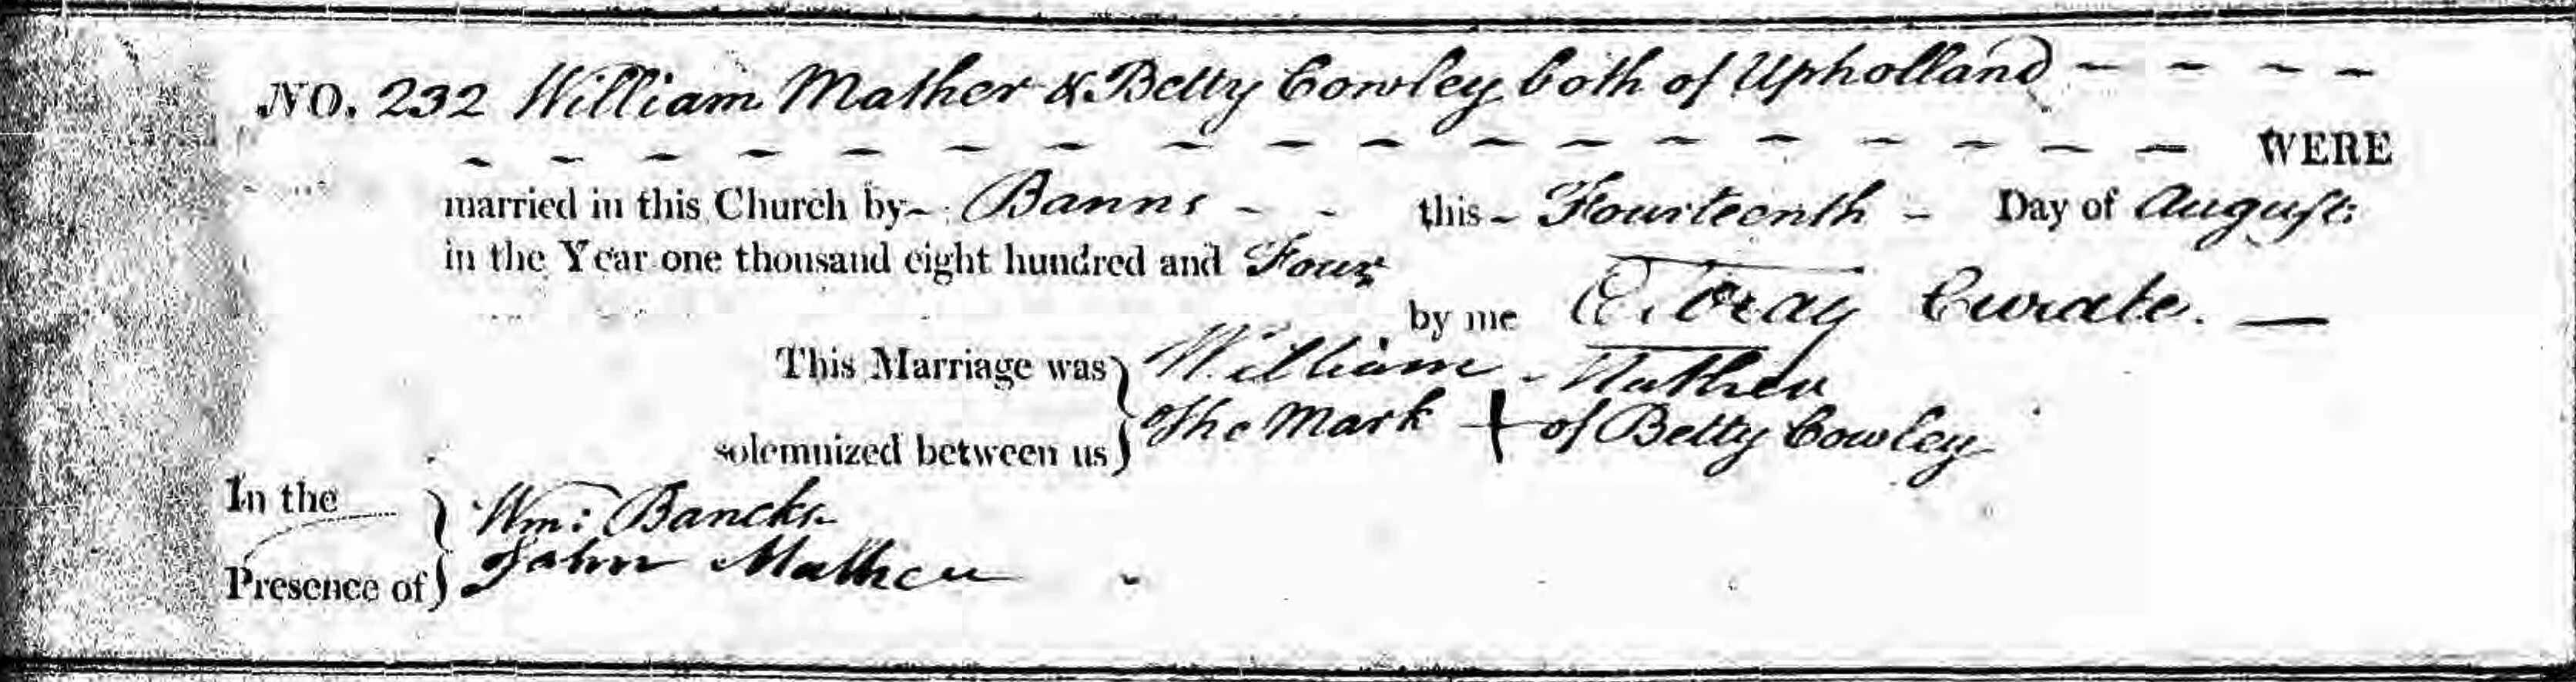 NO. 232 William Mather & Betty Cowley both of Upholland - - - -
- - - - - - - - - - - - - - - - - - WERE
married in this Church by - Banns - - this - Fourteenth - Day of August
in the Year one thousand eight hundred and Four
by me Curate. —
This Marriage was } William Mather
solemnized between us } The Mark + of Betty Cowley
In the } Wm: Bancks
Presence of } John Mather